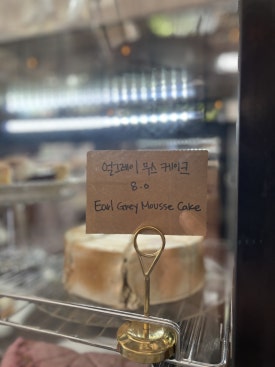 얼그레이 무스 케이크
8.0
Earl Grey Mousse Cake